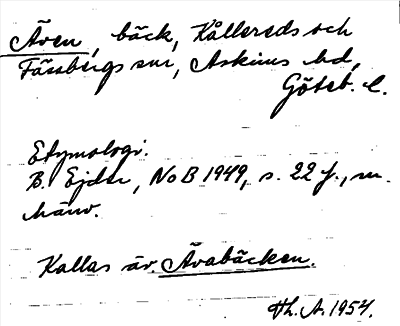 Även, bäck, Kållereds och
Fässbergs snr, Askims hd,
Göteb. l.
Etymologi.
B. Ejder, NoB 1949, s. 22 f., m.
hänv.
Kallas är Ävabäcken.
Hl. A. 1954.